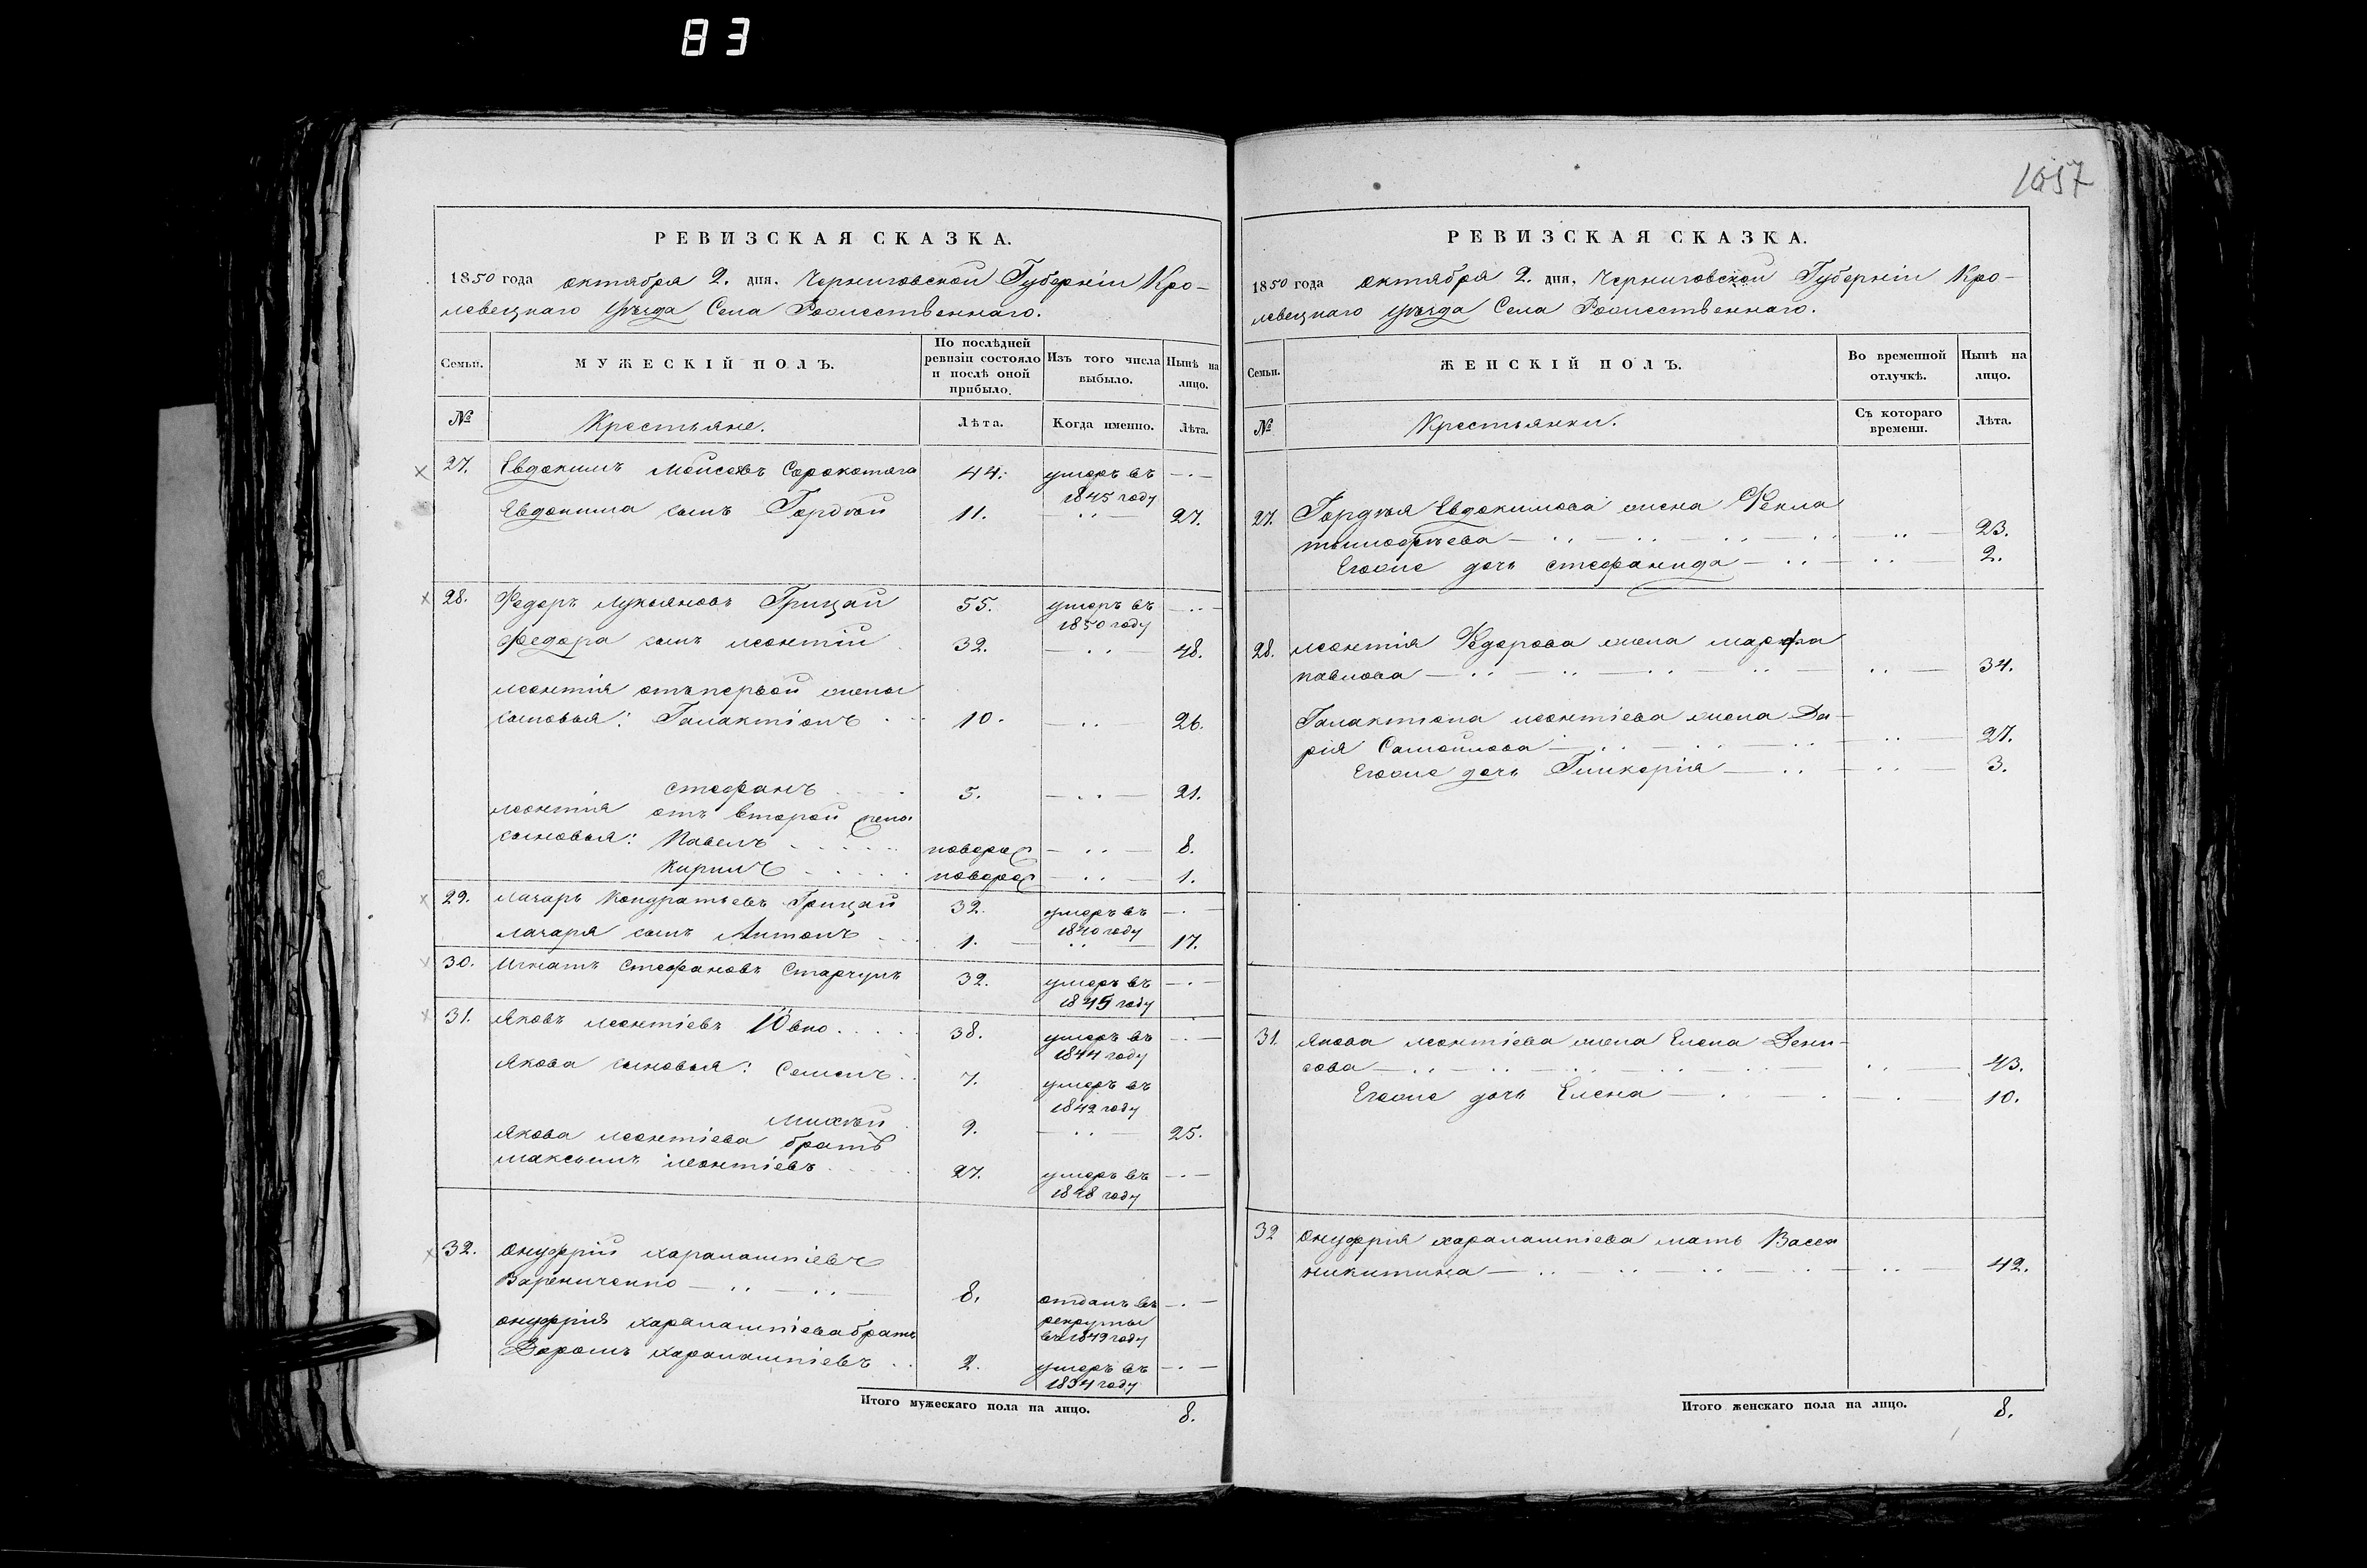 83
1057
РЕВИЗСКАЯ СКАЗКА.
1850 года октября 2. дня. Черниговской Губерніи Кро-
левецкаго уѣзда Села Рожественнаго.
Семьи.
МУЖЕСКІЙ ПОЛЪ.
По послѣдней ревизіи состояло и послѣ оной прибыло.
Изъ того числа выбыло.
Нынѣ на лицо.
№
Крестьяне.
Лѣта.
Когда именно.
Лѣта.
27. Евдокимъ Моисеевъ 44. умеръ въ
1845 году
Евдокима сынъ Гордѣй 11. 27.
28. Федоръ Лукьяновъ Грицай 55. умеръ въ
1850 году
Федора сынъ Леонтій 32. 48.
Леонтія отъ первой жены
сыновья: Галактіонъ 10. 26.
Стефанъ 5. 21.
Леонтія отъ второй жены
сыновья: Павелъ новорож 8.
Кирилъ новорож 1.
29. Лазарь Кондратьевъ Грицай 32. умеръ въ
1840 году
Лазаря сынъ Антонъ 1. 17.
30. Игнатъ Стефановъ 32. умеръ въ
1845 году
31. Яковъ Леонтіевъ 38. умеръ въ
1844 году
Якова сыновья: Семенъ 7. умеръ въ
1842 году
Михѣй 9. 25.
Якова Леонтіева братъ
Максимъ Леонтіевъ 27. умеръ въ
1848 году
32. Онуфрій Харалампіевъ
Варениченко 8. отданъ въ
рекруты
въ 1849 году
Онуфрія Харалампіева братъ
Харалампіевъ 2. умеръ въ
1834 году
Итого мужескаго пола на лицо. 8.
РЕВИЗСКАЯ СКАЗКА.
1850 года октября 2. дня, Черниговской Губерніи Кро-
левецкаго уѣзда Села Рожественнаго.
Семьи.
ЖЕНСКІЙ ПОЛЪ.
Во временной отлучкѣ.
Нынѣ на лицо.
№
Крестьянки.
Съ котораго времени.
Лѣта.
27. Гордѣя Евдокимова жена Фекла
Тимофѣева 23.
Егоже дочь Стефанида 2.
28. Леонтія Федорова жена Марфа
Павлова 34.
Галактіона Леонтіева жена Да-
рія Самойлова 27.
Егоже дочь Гликерія 3.
31. Якова Леонтіева жена Елена Дени-
сова 43.
Егоже дочь Елена 10.
32 Онуфрія Харалампіева мать Васса
Никитина 42.
Итого женскаго пола на лицо. 8.